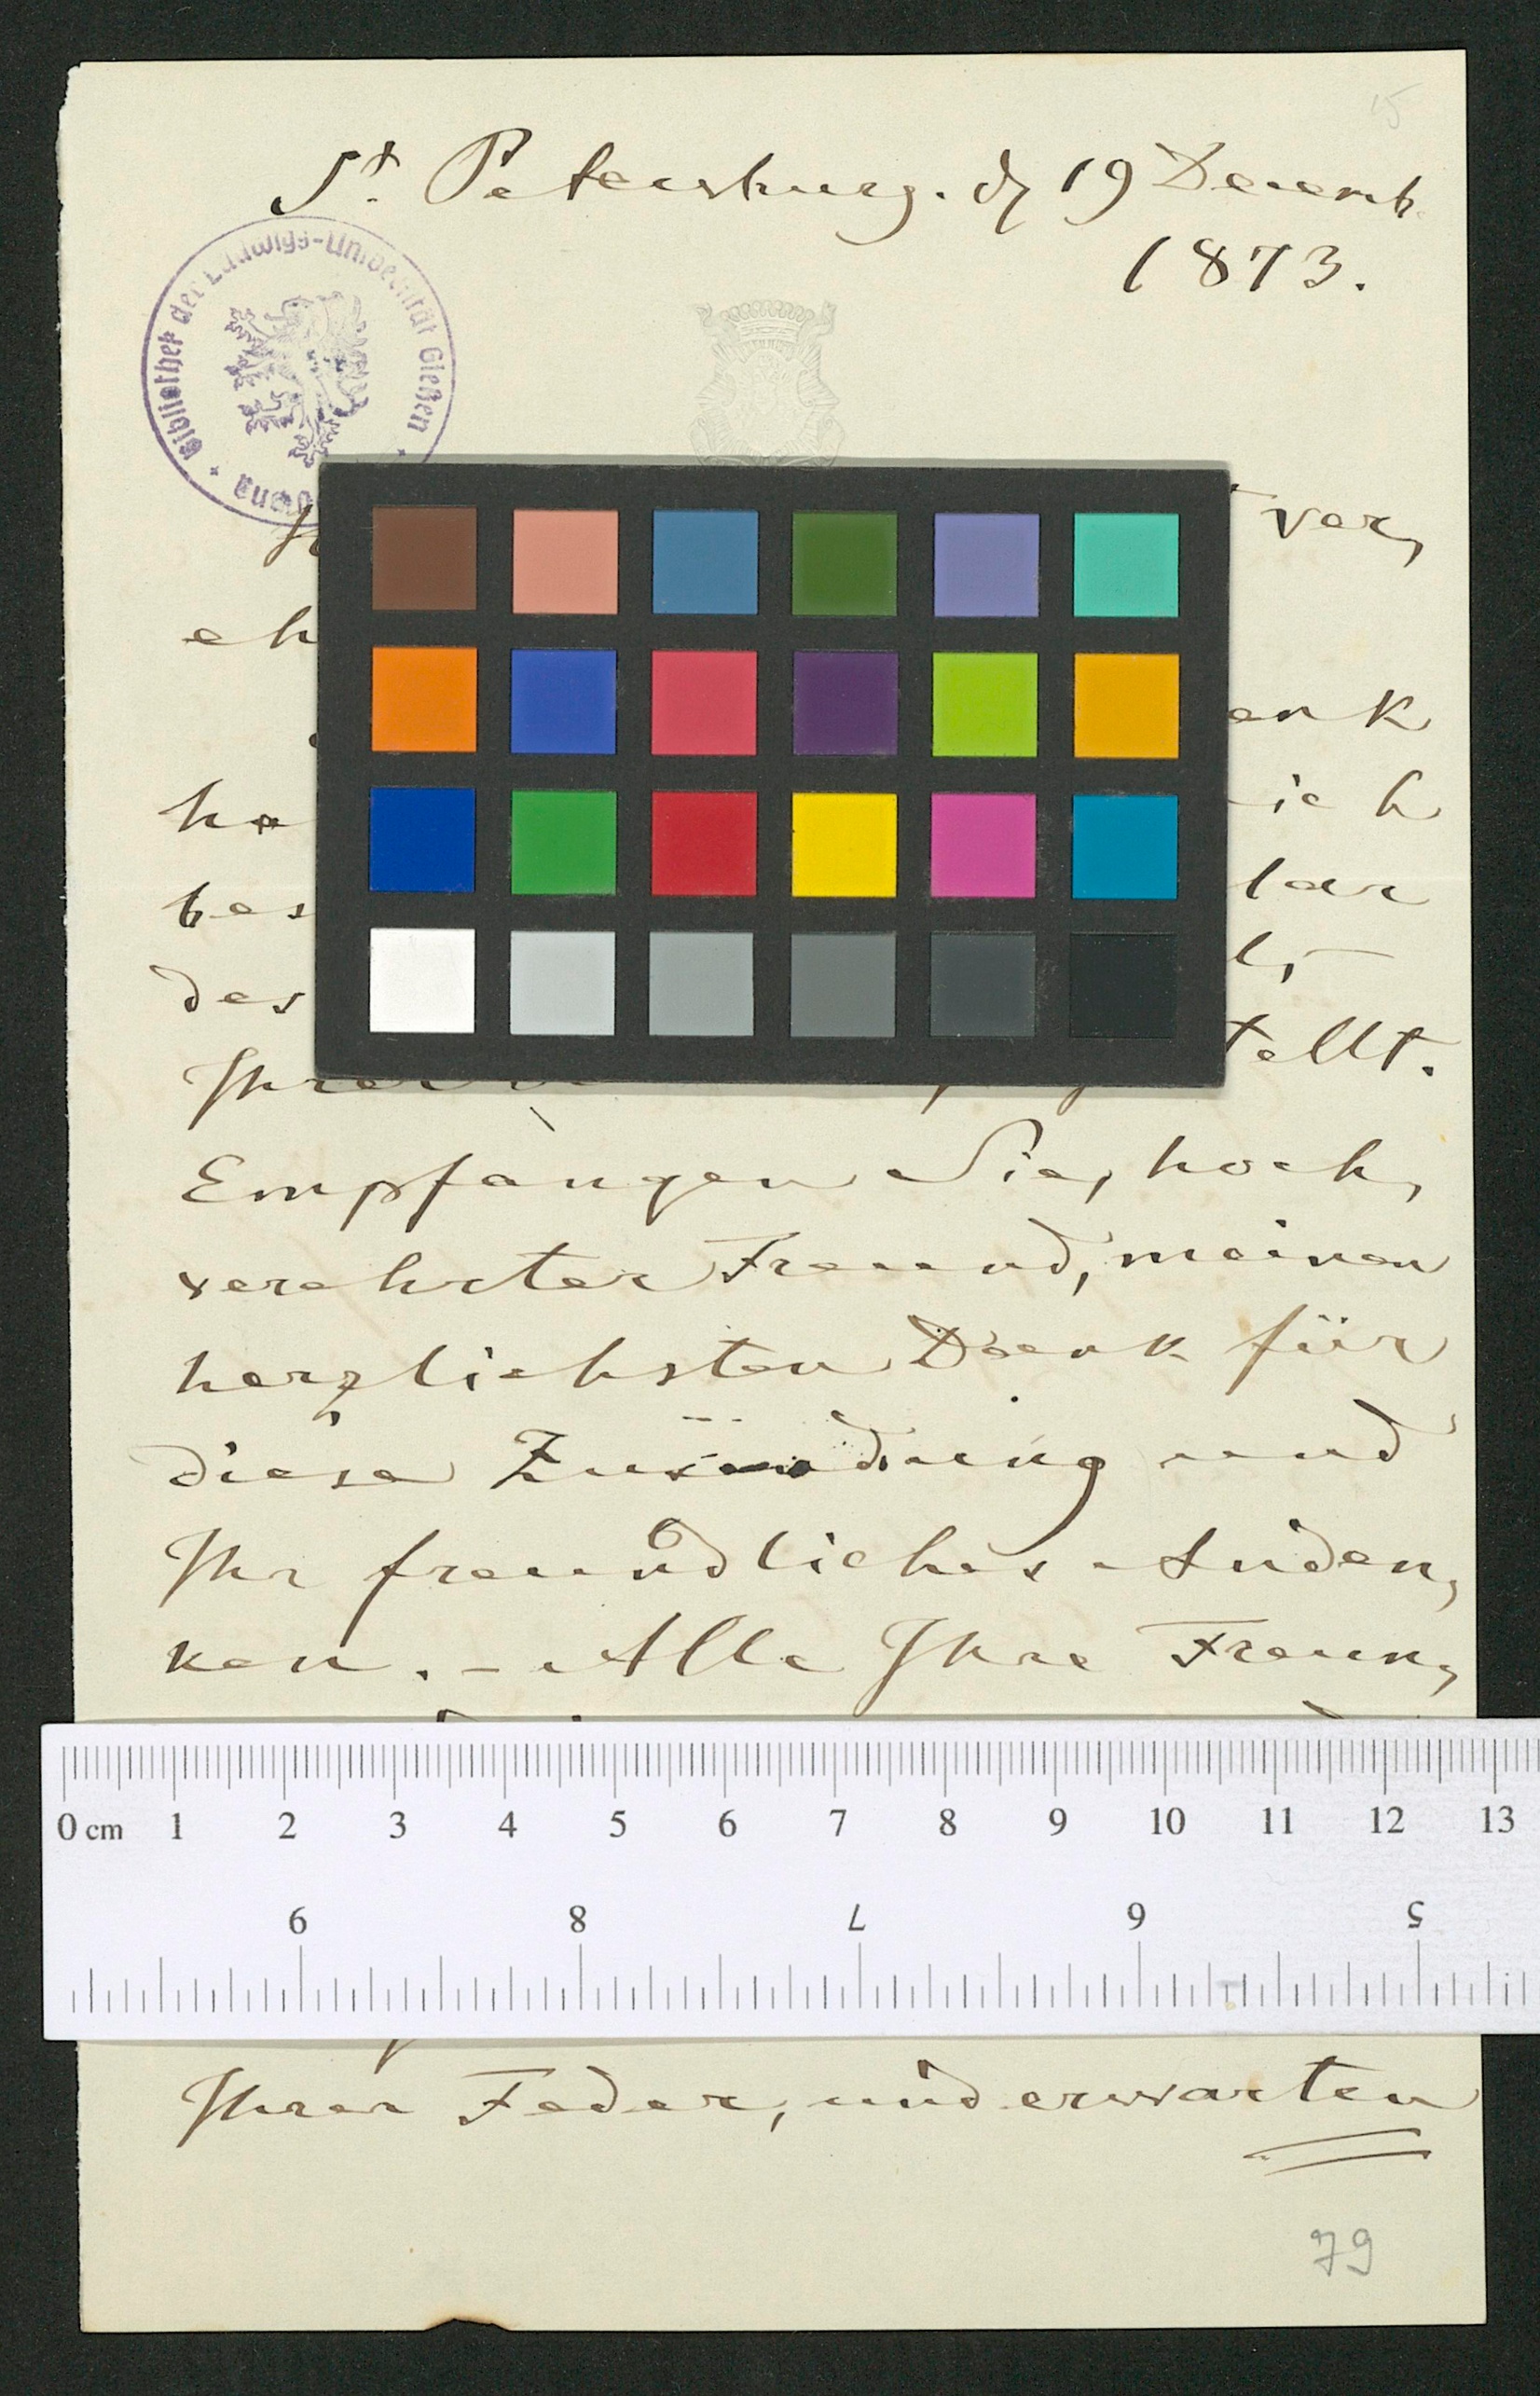 St. Petersburg. d 19 Decemb.
1873.
Bibliothek der Ludwigs-Universität Gießen
ver,
eh
ank
ha
ich
bes
lar
des
l, –
Ihrer
tellt.
Empfangen Sie, hoch,
verehrter Freund, meinen
herzlichsten Dank für
diese Zusendung und
Ihr freundliches Anden,
ken. – Alle Ihre Freun,
0 cm 1 2 3 4 5 6 7 8 9 10 11 12 13
9 8 7 6 5
Ihrer Feder, und erwarten
79